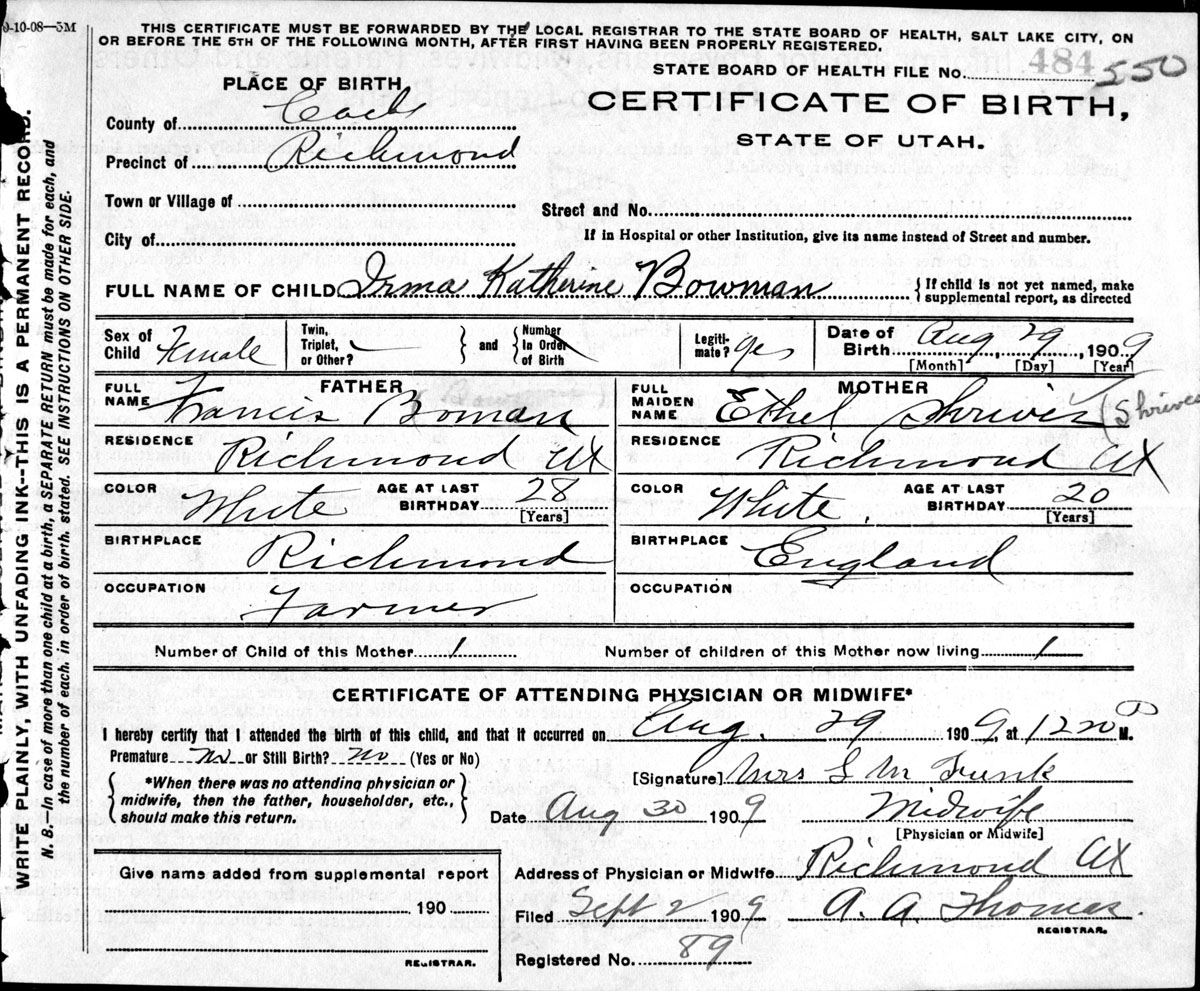 9-10-08—5M
THIS CERTIFICATE MUST BE FORWARDED BY THE LOCAL REGISTRAR TO THE STATE BOARD OF HEALTH, SALT LAKE CITY, ON
OR BEFORE THE 5TH OF THE FOLLOWING MONTH, AFTER FIRST HAVING BEEN PROPERLY REGISTERED.
STATE BOARD OF HEALTH FILE No. 484 550
PLACE OF BIRTH
CERTIFICATE OF BIRTH,
STATE OF UTAH.
County of Cache
Precinct of Richmond
Town or Village of
Street and No.
City of
If in Hospital or other Institution, give its name instead of Street and number.
FULL NAME OF CHILD Irma Katherine Bowman { If child is not yet named, make
supplemental report, as directed
Sex of Child Female
Twin, Triplet, or Other? } and { Number In Order of Birth
Legiti- mate? yes
Date of Birth Aug 29, 1909
[Month] [Day] [Year]
FATHER
FULL NAME Francis Boman
MOTHER
FULL MAIDEN NAME Ethel Shrives (Shrives
RESIDENCE Richmond Ut
RESIDENCE Richmond Ut
COLOR White AGE AT LAST BIRTHDAY 28 [Years]
COLOR White. AGE AT LAST BIRTHDAY 20 [Years]
BIRTHPLACE Richmond
BIRTHPLACE England
OCCUPATION Farmer
OCCUPATION
Number of Child of this Mother 1
Number of children of this Mother now living 1
CERTIFICATE OF ATTENDING PHYSICIAN OR MIDWIFE*
I hereby certify that I attended the birth of this child, and that it occurred on Aug. 29 1909, at 12 20 P M.
Premature No or Still Birth? No (Yes or No)
{ *When there was no attending physician or
midwife, then the father, householder, etc.,
should make this return. }
[Signature] Mrs L M Funk
Date Aug 30 1909 Midwife
[Physician or Midwife]
Address of Physician or Midwife Richmond Ut
Give name added from supplemental report
190
REGISTRAR.
Filed Sept 2 1909 A. A. Thomas.
REGISTRAR.
Registered No. 89
WRITE PLAINLY, WITH UNFADING INK--THIS IS A PERMANENT RECORD.
N. B.—In case of more than one child at a birth, a SEPARATE RETURN must be made for each, and
the number of each, in order of birth, stated. SEE INSTRUCTIONS ON OTHER SIDE.